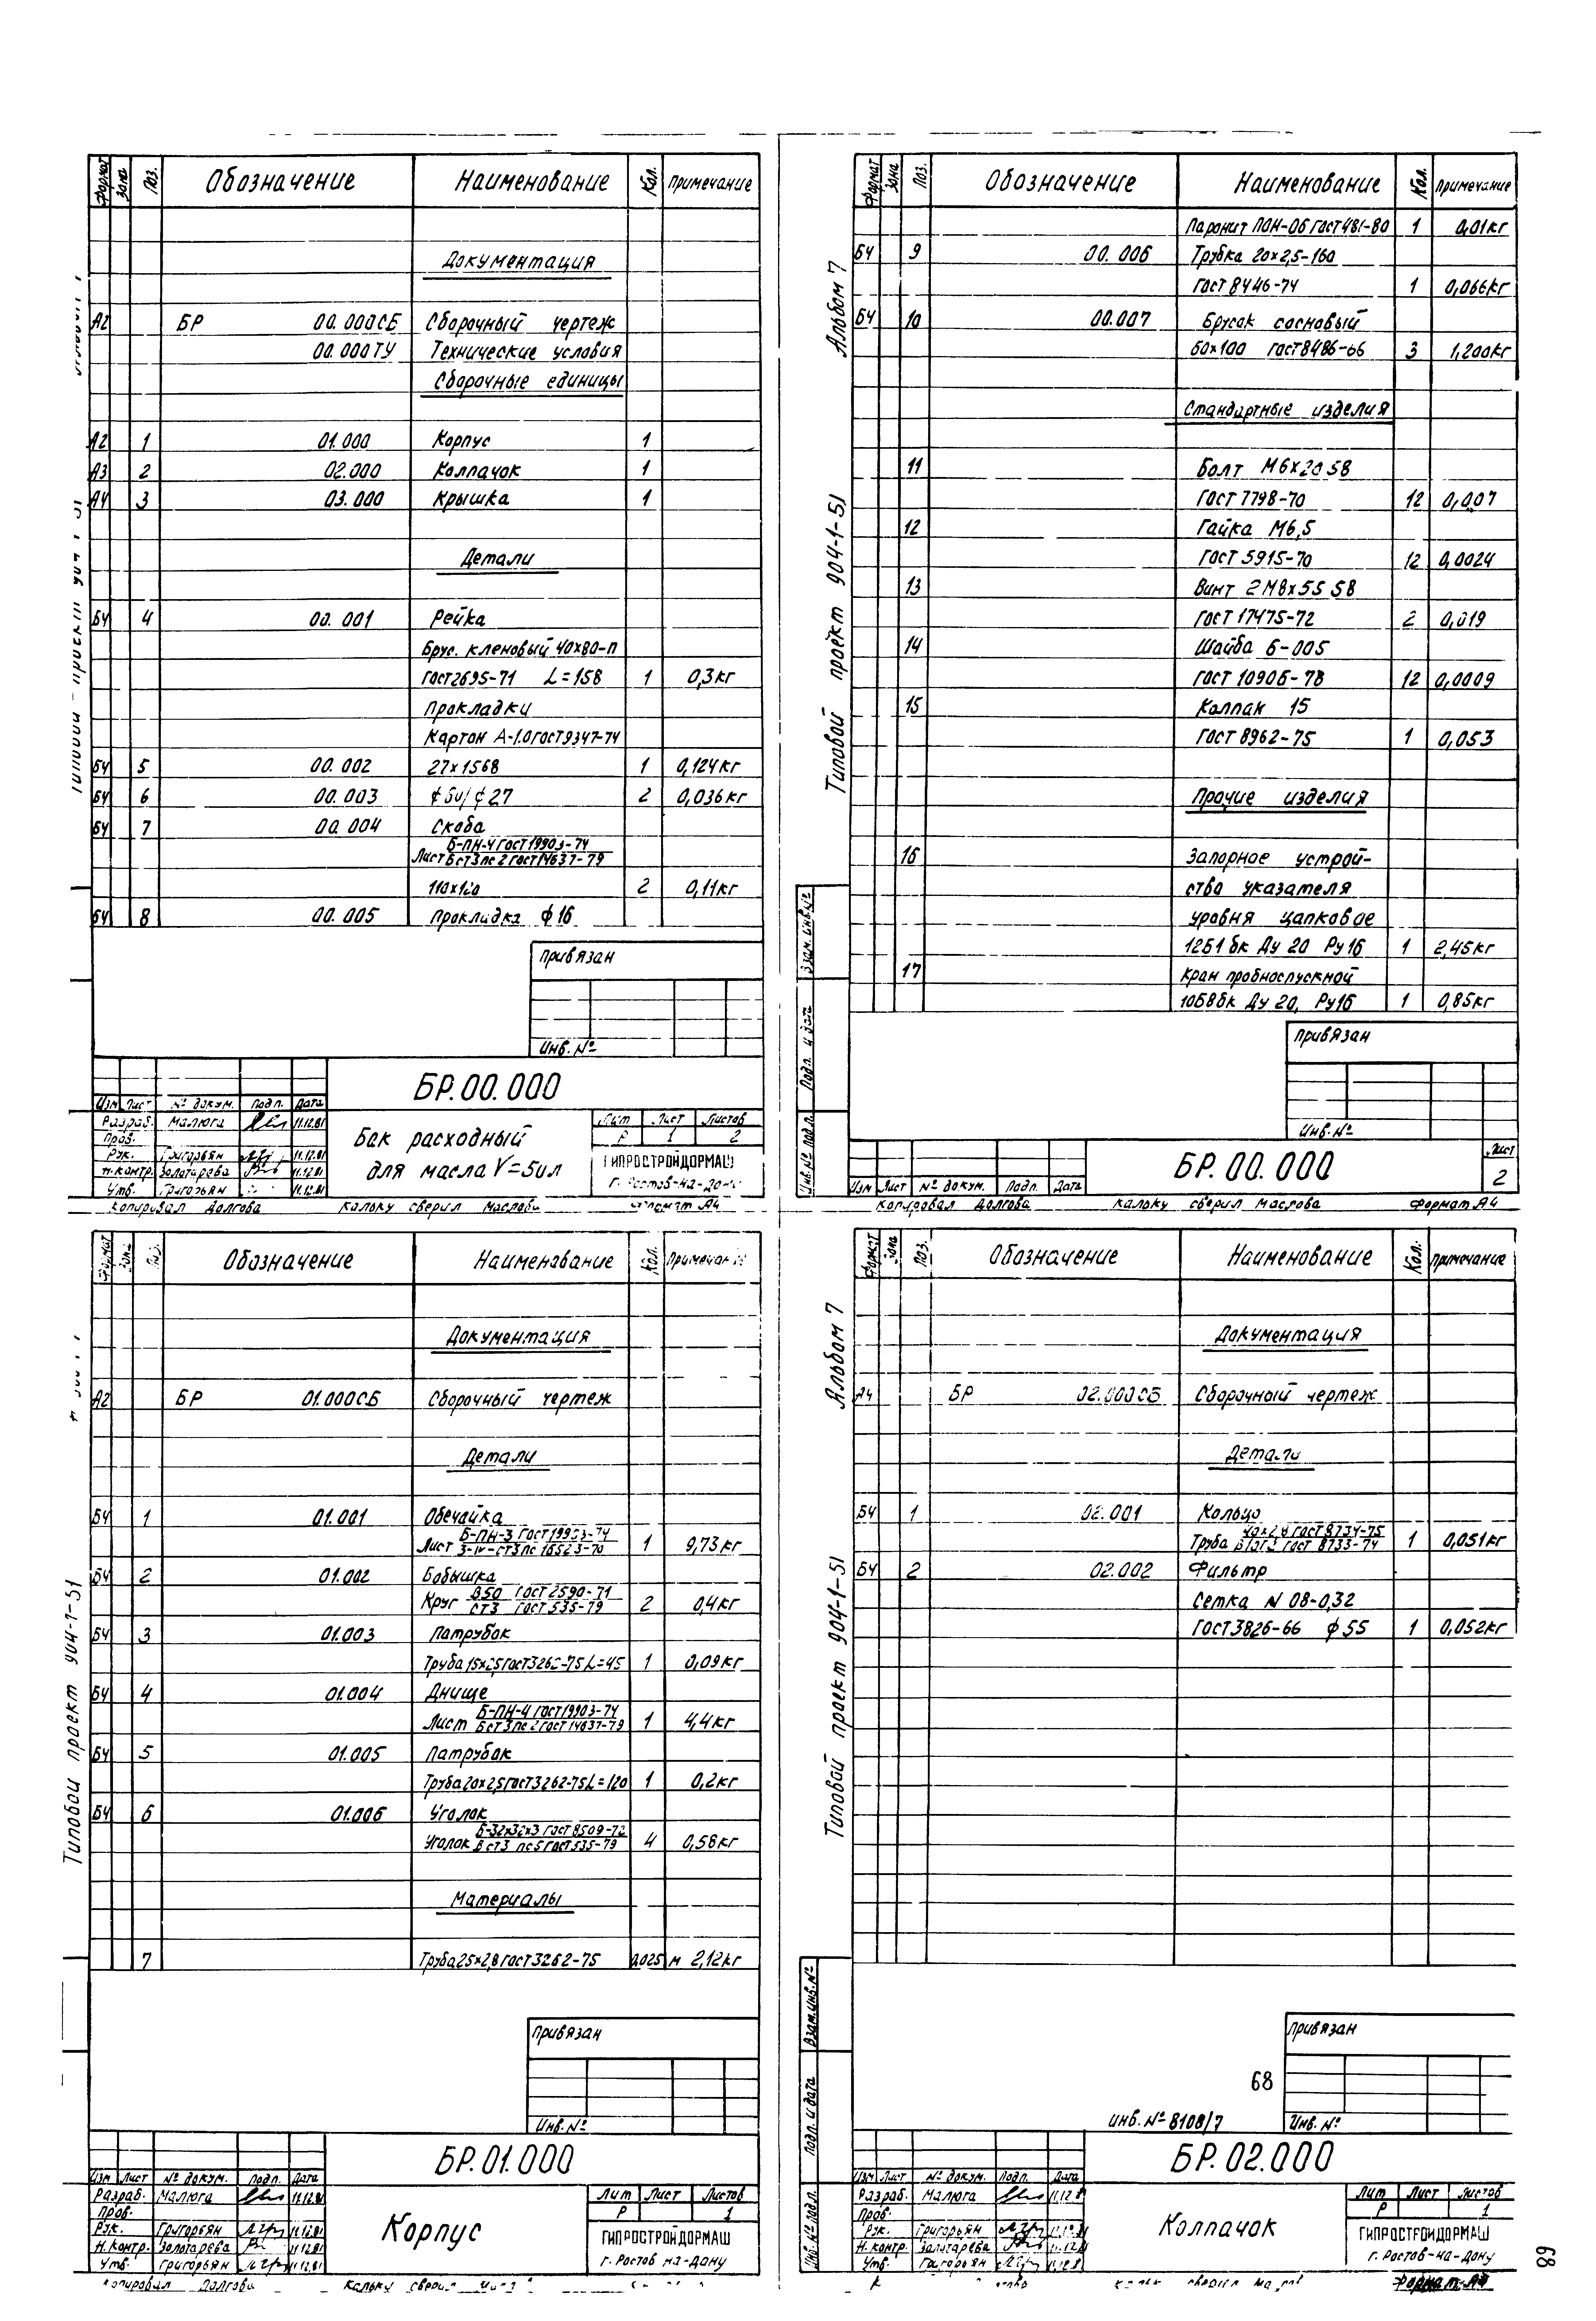 Формат Зона Поз. Обозначение Наименование Кол. Примечание
Документация
А2 БР 00.000СБ Сборочный чертеж
00.000ТУ Технические условия
Сборочные единицы
А2 1 01.000 Корпус 1
А3 2 02.000 Колпачок 1
А4 3 03.000 Крышка 1
Детали
БЧ 4 00.001 Рейка
Брус. кленовый 40х80-П
ГОСТ 2695-71 L=158 1 0,3кг
Прокладки
Картон А-1.0 ГОСТ 9347-74
БЧ 5 00.002 27х1568 1 0,124кг
БЧ 6 00.003 ф50/ф27 2 0,036кг
БЧ 7 00.004 Скоба
Б-ПН-4 ГОСТ 19903-74
Лист Бст3пс2 ГОСТ 14637-79
110х120 2 0,11кг
БЧ 8 00.005 Прокладка ф16
Привязан
Инв. №
БР.00.000
Изм Лист № докум. Подп. Дата
Разраб. Малюга 11.12.81
Пров.
Рук. Григорьян 11.12.81
Н.контр. Золотарева 11.12.81
Утв. Григорьян 11.12.81
Бак расходный
для масла V=50л
Лит Лист Листов
Р 1 2
ГИПРОСТРОЙДОРМАШ
г. Ростов-на-Дону
Копировал Долгова Кальку сверил Маслова Формат А4
Альбом 7
Типовой проект 904-1-51
Формат Зона Поз. Обозначение Наименование Кол. Примечание
Паронит ПОН-0,6 ГОСТ 481-80 1 0,01кг
БЧ 9 00.006 Трубка 20х2,5-160
ГОСТ 8446-74 1 0,066кг
БЧ 10 00.007 Брусок сосновый
50х100 ГОСТ 8486-66 3 1,200кг
Стандартные изделия
11 Болт М6х20 58
ГОСТ 7798-70 12 0,007
12 Гайка М6,5
ГОСТ 5915-70 12 0,0024
13 Винт 2М8х55 58
ГОСТ 17475-72 2 0,019
14 Шайба 6-005
ГОСТ 10906-78 12 0,0009
15 Колпак 15
ГОСТ 8962-75 1 0,053
Прочие изделия
16 Запорное устрой-
ство указателя
уровня цапковое
12Б1бк Ду 20 Ру16 1 2,45кг
17 Кран пробноспускной
10Б8бк Ду 20, Ру16 1 0,85кг
Взам. инв. №
Подп. и дата
Инв. № подл.
Привязан
Инв. №
Изм Лист № докум. Подп. Дата
БР.00.000
Лист
2
Копировал Долгова Кальку сверил Маслова Формат А4
Типовой проект 904-1-51
Формат Зона Поз. Обозначение Наименование Кол. Примечание
Документация
А2 БР 01.000СБ Сборочный чертеж
Детали
БЧ 1 01.001 Обечайка
Б-ПН-3 ГОСТ 19903-74
Лист 3-IV-Ст3пс 16523-70 1 9,73кг
БЧ 2 01.002 Бобышка
В50 ГОСТ 2590-71
Круг Ст3 ГОСТ 535-79 2 0,4кг
БЧ 3 01.003 Патрубок
Труба 15х2,5 ГОСТ 3262-75 L=45 1 0,09кг
БЧ 4 01.004 Днище
Б-ПН-4 ГОСТ 19903-74
Лист Бст3пс2 ГОСТ 14637-79 1 4,4кг
БЧ 5 01.005 Патрубок
Труба 20х2,5 ГОСТ 3262-75 L=120 1 0,2кг
БЧ 6 01.006 Уголок
Б-32х32х3 ГОСТ 8509-72
Уголок Вст3 пс5 ГОСТ 535-79 4 0,58кг
Материалы
7 Труба 25х2,8 ГОСТ 3262-75 0,025 м 2,12кг
Привязан
Инв. №
БР.01.000
Изм Лист № докум. Подп. Дата
Разраб. Малюга 11.12.81
Пров.
Рук. Григорьян 11.12.81
Н.контр. Золотарева 11.12.81
Утв. Григорьян 11.12.81
Корпус
Лит Лист Листов
Р 1
ГИПРОСТРОЙДОРМАШ
г. Ростов-на-Дону
Копировал Долгова Кальку сверил
Альбом 7
Типовой проект 904-1-51
Формат Зона Поз. Обозначение Наименование Кол. Примечание
Документация
А4 БР 02.000СБ Сборочный чертеж
Детали
БЧ 1 02.001 Кольцо
40х2,8 ГОСТ 8734-75
Труба ГОСТ 8733-74 1 0,051кг
БЧ 2 02.002 Фильтр
Сетка N 08-0,32
ГОСТ 3826-66 ф55 1 0,052кг
Взам. инв. №
Подп. и дата
Инв. № подл.
Привязан
68
инв. № 8108/7
Инв. №
БР.02.000
Изм Лист № докум. Подп. Дата
Разраб. Малюга 11.12.8
Пров.
Рук. Григорьян 11.12.81
Н.контр. Золотарева 11.12.81
Утв. Григорьян 11.12.8
Колпачок
Лит Лист Листов
Р 1
ГИПРОСТРОЙДОРМАШ
г. Ростов-на-Дону
Формат А4
68